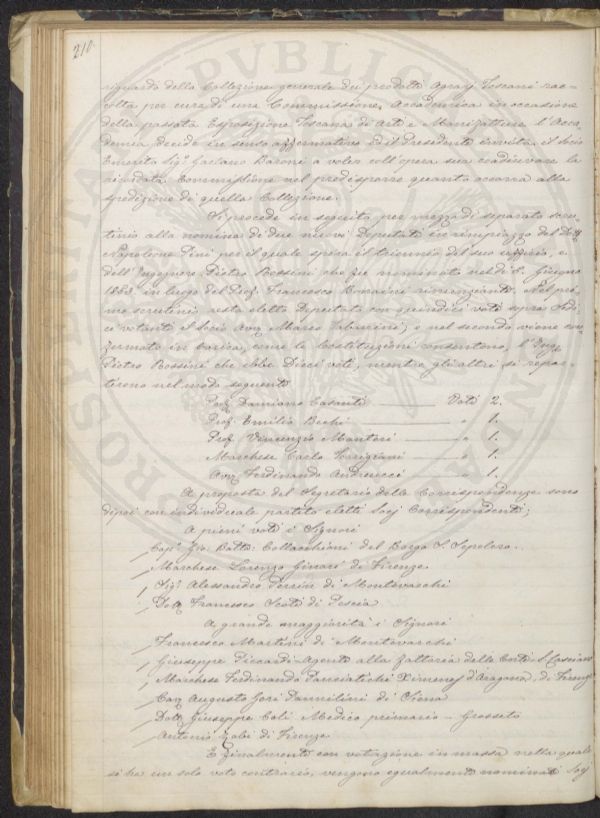 210.
riguardo della Collezione generale dei prodotti Agrarj Toscani rac-
colta per cura di una Commissione Accademica in occasione
della passata Esposizione Toscana di Arti e Manifatture l'Acca-
demia decide in senso affermativo ed il Presidente invita il Socio
Emerito Sig. Gaetano Baroni a voler coll'opera sua coadiuvare la
Commissione nel predisporre quanto occorra alla
spedizione di quella Collezione.
Si procede in seguito per mezzo di separato scru-
tinio alla nomina di due nuovi Deputati in rimpiazzo del
Napoleone Pini per il quale spira il triennio del suo uffizio, e
dell'Ingegnere Pietro Rossini che fu nominato nel dì Giugno
in luogo del Prof. Francesco rinunziante. Nel pri-
mo scrutinio resta eletto Deputato con quindici voti sopra Sedi-
ci votanti il Socio Avv. Marco Tabarrini, e nel secondo viene con-
fermato in carica, come le Costituzioni consentono, l'Ing.
Pietro Rossini che ebbe Dieci voti, mentre gli altri si repar-
tirono nel modo seguente
Prof. Damiano Casanti Voti 2.
Prof. Emilio Bechi " 1.
Prof. Vincenzio Manteri " 1.
Marchese Carlo Torrigiani " 1.
Avv. Ferdinando Andreucci " 1.
A proposta del Segretario delle Corrispondenze sono
dipoi con individuale partito eletti Socj Corrispondenti;
A pieni voti i Signori
Cap. Gio. Batta. Collacchioni del Borgo S. Sepolcro.
Marchese Lorenzo Ginori di Firenze
Sig. Alessandro Perrin di Montevarchi
Dott. Francesco Scoti di Pescia
A grande maggiorità i Signori
Francesco Martini di Montevarchi
Giuseppe Piccardi Agente alla fattoria delle Corti S. Casciano
Marchese Ferdinando Panciatichi Ximenes d'Aragona, di Firenze
Cav. Augusto Gori Pannilini di Siena
Dott. Giuseppe Coli Medico primario - Grosseto
Antonio Zobi di Firenze
E finalmente con votazione in massa nella quale
si ha un solo voto contrario, vengono egualmente nominati Socj